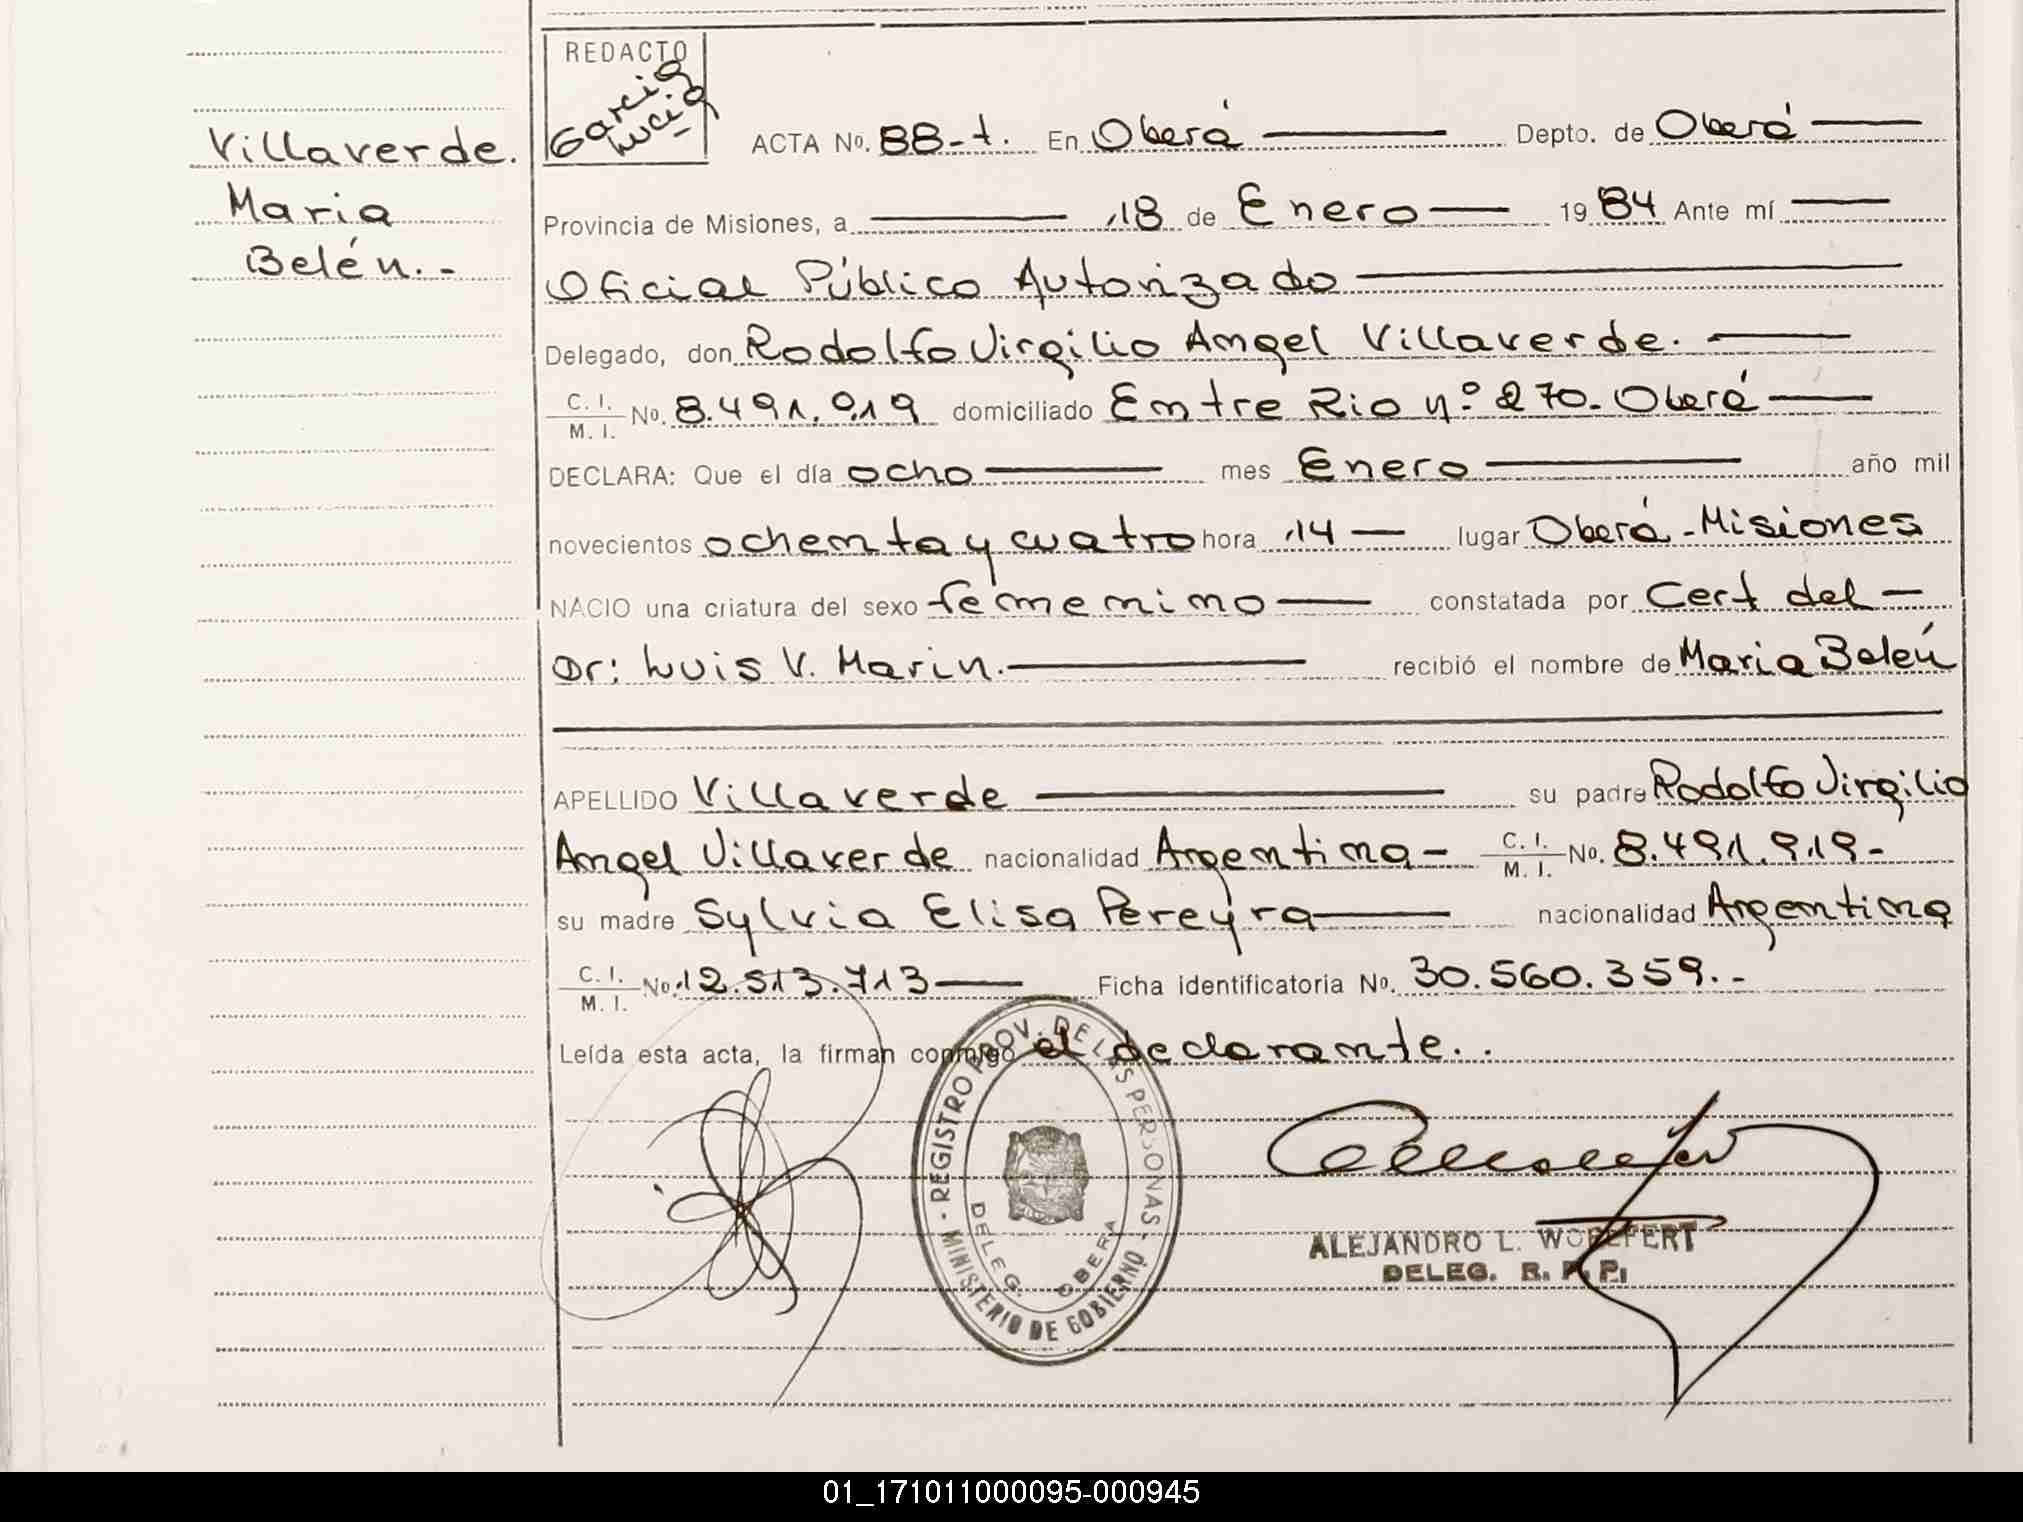 REDACTO
Garcia
Lucia
Villaverde.
Maria
Belén.-
ACTA No. 88-t. En Oberá Depto. de Oberá
Provincia de Misiones, a 18 de Enero 1984 Ante mí
Oficial Público Autorizado
Delegado, don Rodolfo Virgilio Angel Villaverde.
C. I. / M. I. No. 8.491.919 domiciliado Entre Rio nº 270. Oberá
DECLARA: Que el día ocho mes Enero año mil
novecientos ochenta y cuatro hora 14 lugar Oberá - Misiones
NACIO una criatura del sexo femenino constatada por Cert del
Dr: Luis V. Marin. recibió el nombre de Maria Belén
APELLIDO Villaverde su padre Rodolfo Virgilio
Angel Villaverde nacionalidad Argentina - C. I. / M. I. No. 8.491.919-
su madre Sylvia Elisa Pereyra nacionalidad Argentina
C. I. / M. I. No. 12.513.713 Ficha identificatoria No. 30.560.359.-
Leída esta acta, la firman conmigo el declarante..
- REGISTRO PROV. DE LAS PERSONAS -
MINISTERIO DE GOBIERNO
DELEG. OBERA
ALEJANDRO L. WOELFERT
DELEG. R. P. P.
01_171011000095-000945